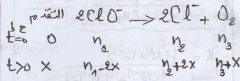 التقدم 2ClO⁻ → 2Cl⁻ + O₂
t=0 0 n₁ n₂ n₃
t>0 x n₁-2x n₂+2x n₃+x